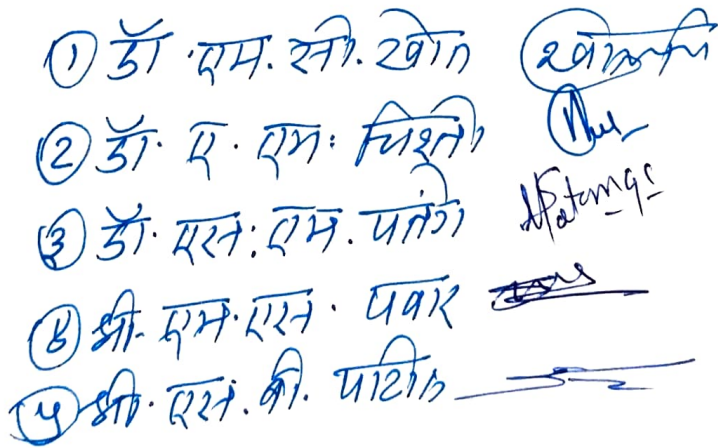 ① डॉ. एम. सी. खोत
② डॉ. ए. एम. चिश्ती
③ डॉ. एस. एम. पतंगे
④ श्री. एम. एस. पवार
⑤ श्री. एस. बी. पाटील